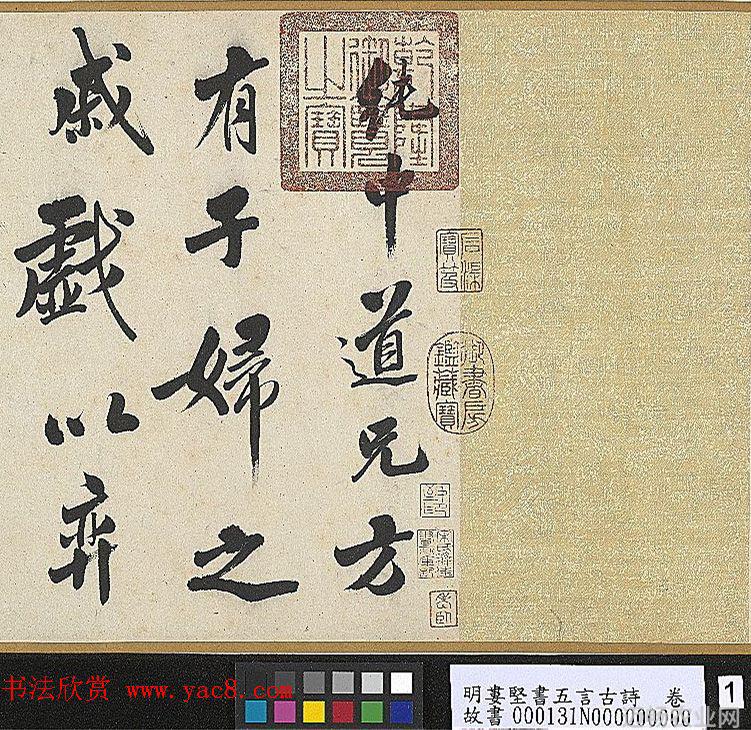 純中道兄方
有子婦之
戚戲以弈
乾隆御覽之寶
石渠寶笈
御書房鑑藏寶
书法欣赏 www.yac8.com
明婁堅書五言古詩 卷
故書 000131N000000000
1